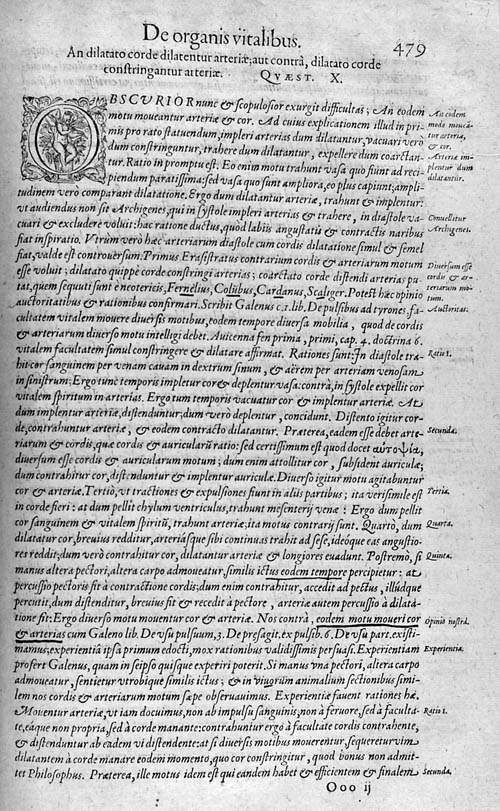 De organis vitalibus.
479
An dilatato corde dilatentur arteriæ, aut contrà, dilatato corde
constringantur arteriæ. QVÆST. X.
OBSCVRIOR nunc & scopulosior exurgit difficultas; An eodem
motu moueantur arteriæ & cor. Ad cuius explicationem illud in pri-
mis pro rato statuendum, impleri arterias dum dilatantur, vacuari verò
dum constringuntur, trahere dum dilatantur, expellere dum coarctan-
tur. Ratio in promptu est. Eo enim motu trahunt vasa quo fiunt ad reci-
piendum paratissima: sed vasa quo sunt ampliora, eo plus capiunt; ampli-
tudinem verò comparant dilatatione. Ergo dum dilatantur arteriæ, trahunt & implentur:
vt audiendus non sit Archigenes, qui in systole impleri arterias & trahere, in diastole va-
cuari & excludere voluit: hac ratione ductus, quod labiis angustatis & contractis naribus
fiat inspiratio. Vtrum verò hæc arteriarum diastole cum cordis dilatatione simul & semel
fiat, valde est controuersum. Primus Erasistratus contrarium cordis & arteriarum motum
esse voluit; dilatato quippe corde constringi arterias; coarctato corde distendi arterias pu-
tat, quem sequuti sunt è neotericis, Fernelius, Colūbus, Cardanus, Scaliger. Potest hæc opinio
auctoritatibus & rationibus confirmari. Scribit Galenus c.1. lib. De pulsibus ad tyrones fa-
cultatem vitalem mouere diuersis motibus, eodem tempore diuersa mobilia, quod de cordis
& arteriarum diuerso motu intellegi debet. Auicenna fen prima, primi, cap. 4. doctrina 6.
vitalem facultatem simul constringere & dilatare affirmat. Rationes sunt: In diastole tra-
hit cor sanguinem per venam cauam in dextrum sinum, & aërem per arteriam venosam
in sinistrum: Ergo tunc temporis impletur cor & deplentur vasa: contrà, in systole expellit cor
vitalem spiritum in arterias. Ergo tum temporis vacuatur cor & implentur arteriæ. At
dum implentur arteriæ, distenduntur, dum verò deplentur, concidunt. Distento igitur cor-
de, contrahuntur arteriæ, & eodem contracto dilatantur. Præterea, eadem esse debet arte-
riarum & cordis, quæ cordis & auricularū ratio: sed certissimum est quod docet αὐτοψία,
diuersum esse cordis & auricularum motum; dum enim attollitur cor, subsident auriculæ;
dum contrahitur cor, distenduntur & implentur auriculæ. Diuerso igitur motu agitabuntur
cor & arteriæ. Tertiò, vt tractiones & expulsiones fiunt in aliis partibus; ita verisimile est
in corde fieri: at dum pellit chylum ventriculus, trahunt mesenterij venæ: Ergo dum pellit
cor sanguinem & vitalem spiritū, trahunt arteriæ; ita motus contrarij sunt. Quartò, dum
dilatatur cor, breuius redditur, arteriasque sibi continuas trahit ad sese, ideóque eas angustio-
res reddit; dum verò contrahitur cor, dilatantur arteriæ & longiores euadunt. Postremò, si
manus altera pectori, altera carpo admoueatur, similis ictus eodem tempore percipietur: at
percussio pectoris fit à contractione cordis; dum enim contrahitur, accedit ad pectus, illúdque
percutit, dum distenditur, breuius fit & recedit à pectore, arteriæ autem percussio à dilata-
tione fit: Ergo diuerso motu mouentur cor & arteriæ. Nos contrà, eodem motu moueri cor
& arterias cum Galeno lib. De vsu pulsuum, 3. De præsagit. ex pulsib. 6. De vsu part. existi-
mamus; experientiâ ipsa primum edocti, mox rationibus validissimis persuasi. Experientiam
profert Galenus, quam in seipso quisque experiri poterit. Si manus vna pectori, altera carpo
admoueatur, sentietur vtrobique similis ictus; & in viuorum animalium sectionibus simi-
lem nos cordis & arteriarum motum sæpe obseruauimus. Experientiæ fauent rationes hæ.
Mouentur arteriæ, vt iam docuimus, non ab impulsu sanguinis, non à feruore, sed à faculta-
te, eáque non propria, sed à corde manante: contrahuntur ergo à facultate cordis contrahente,
& distenduntur ab eadem vi distendente: at si diuersis motibus mouerentur, sequeretur vim
dilatantem à corde manare eodem momento, quo cor constringitur, quod bonus non admit-
tet Philosophus. Præterea, ille motus idem est qui eandem habet & efficientem & finalem
Ooo ij
An eodem
modo mouean-
tur arteriæ,
& cor.
Arteriæ im-
plentur dum
dilatantur.
Conuellitur
Archigenes.
Diuersum esse
cordis & ar-
teriarum mo-
tum.
Auctoritas.
Ratio 1.
Secunda.
Tertia.
Quarta.
Quinta.
Opinio nostra.
Experientia.
Ratio 1.
Secunda.